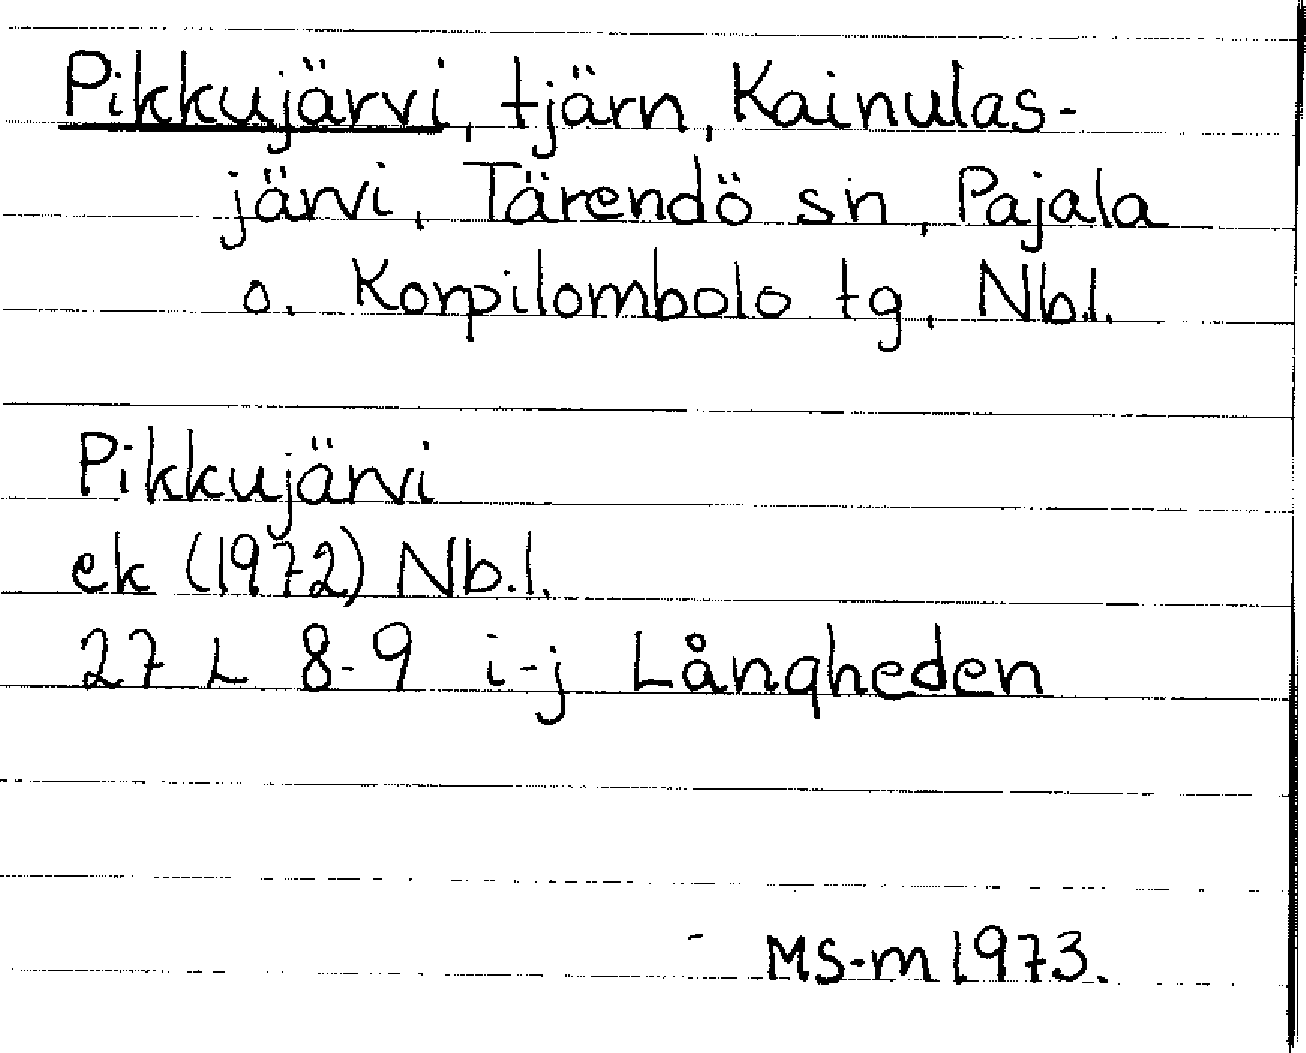 Pikkujärvi, tjärn, Kainulas-
järvi, Tärendö sn, Pajala
o. Korpilombolo tg, Nb.l.
Pikkujärvi
ek (1972) Nb.l.
27 L 8-9 i-j Långheden
MS-m 1973.